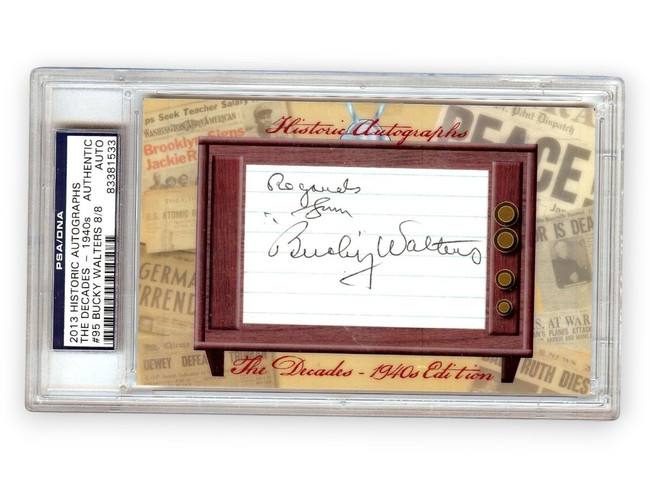 PSA/DNA
2013 HISTORIC AUTOGRAPHS
THE DECADES - 1940s AUTHENTIC
#95 BUCKY WALTERS 8/8 AUTO
83381533
Historic Autographs
ps Seek Teacher Salary
WASHINGTON AMERICAN
Brooklyn Signs
Jackie R
S. ATOMIC
GERMA
RREND
DEWEY DEFEA
Paul Dispatch
PEACE!
OR IS DEA
S. AT WAR
AN'S PLANES ATTACK
RUTH DIES
Regards
Bucky Walters
The Decades - 1940s Edition